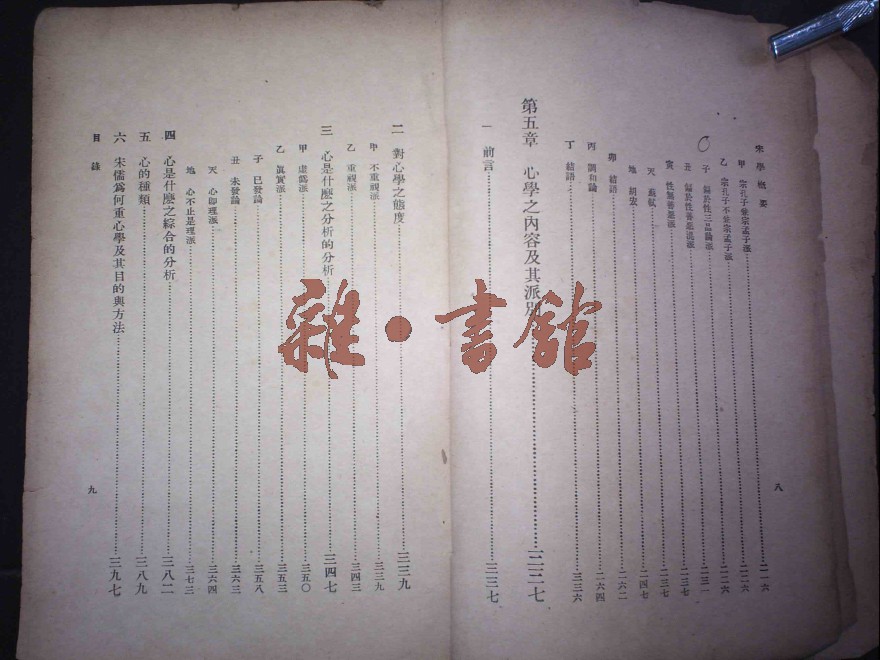 宋學概要
甲 宗孔子兼宗孟子派……二一六
乙 宗孔子不兼宗孟子派……二二六
子 屬於性三品論派……二二六
丑 屬於性善惡混派……二三一
寅 性無善惡派……二三七
天 蘇軾……二三七
地 胡宏……二四七
卯 結語……二六二
丙 調和論……二六四
丁 結語……三三六
第五章 心學之內容及其派別……三三七
一 前言……三三七
八
二 對心學之態度……三三九
甲 不重視派……三三九
乙 重視派……三四三
三 心是什麽之分析的分析……三四七
甲 虛僞派……三五〇
乙 眞實派……三五三
子 已發論……三五八
丑 未發論……三六三
天 心即理派……三六四
地 心不止是理派……三七三
四 心是什麽之綜合的分析……三八二
五 心的種類……三八九
六 宋儒爲何重心學及其目的與方法……三九七
目錄
九
雜·書館